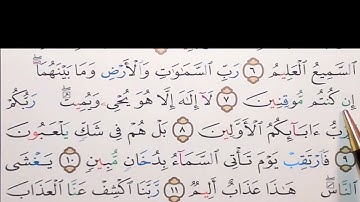 ٱلسَّمِيعُ ٱلْعَلِيمُ ٦ رَبِّ ٱلسَّمَٰوَٰتِ وَٱلْأَرْضِ وَمَا بَيْنَهُمَآ
إِن كُنتُم مُّوقِنِينَ ٧ لَآ إِلَٰهَ إِلَّا هُوَ يُحْىِۦ وَيُمِيتُ رَبُّكُمْ
وَرَبُّ ءَابَآئِكُمُ ٱلْأَوَّلِينَ ٨ بَلْ هُمْ فِى شَكٍّ يَلْعَبُونَ
٩ فَٱرْتَقِبْ يَوْمَ تَأْتِى ٱلسَّمَآءُ بِدُخَانٍ مُّبِينٍ ١٠ يَغْشَى
ٱلنَّاسَ هَٰذَا عَذَابٌ أَلِيمٌ ١١ رَّبَّنَا ٱكْشِفْ عَنَّا ٱلْعَذَابَ